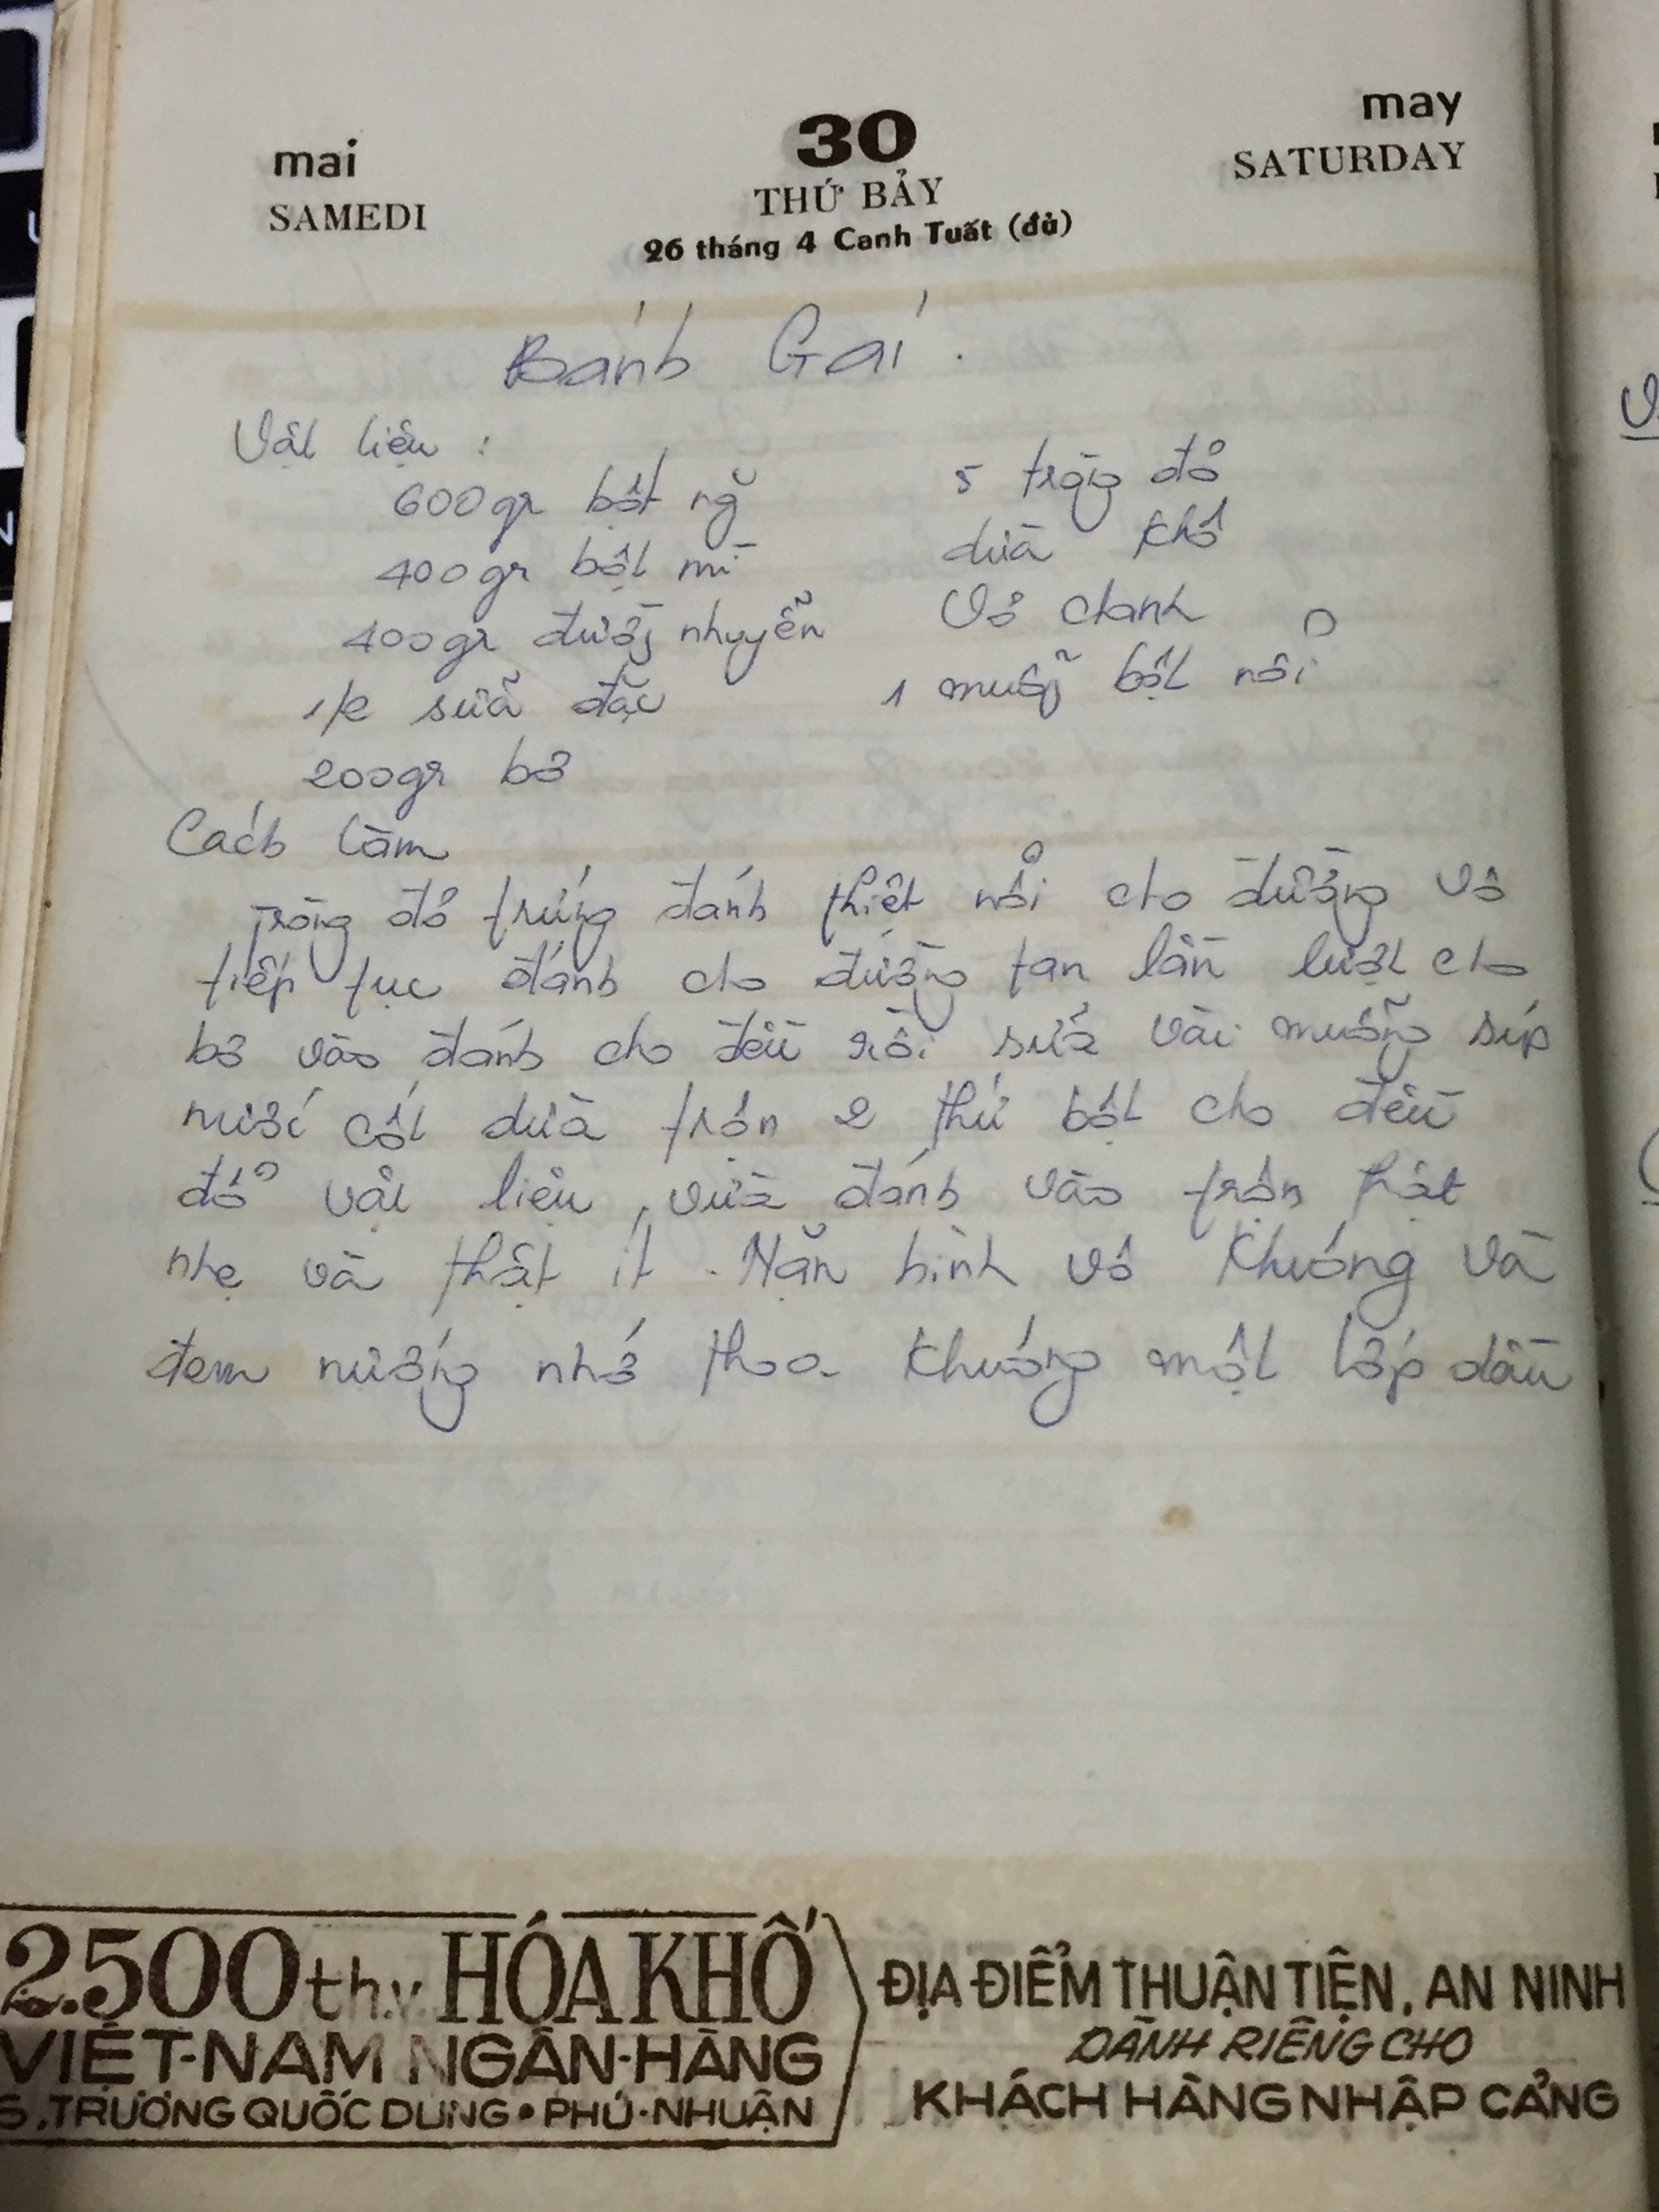 mai
SAMEDI
30
THỨ BẢY
26 tháng 4 Canh Tuất (đủ)
may
SATURDAY
Bánh Gai
Vật liệu :
600gr bột ng
400gr bột mì
400gr đường nhuyễn
1/2 sữa đặc
200gr bơ
5 tròng đỏ
dừa khô
Vỏ chanh
1 muỗng bột nổi
Cách làm
Tròng đỏ trứng đánh thiệt nổi cho đường vô
tiếp tục đánh cho đường tan lần lượt cho
bơ vào đánh cho đều rồi sữa vài muỗng súp
nước cốt dừa trộn 2 thứ bột cho đều
đổ vật liệu vừa đánh vào trộn thật
nhẹ và thật ít. Nặn hình vô khuông và
đem nướng nhớ thoa khuông một lớp dầu
2.500 th.v. HÓA KHỐ
VIỆT-NAM NGÂN-HÀNG
TRƯƠNG QUỐC DUNG • PHÚ-NHUẬN
ĐỊA ĐIỂM THUẬN TIỆN, AN NINH
DÀNH RIÊNG CHO
KHÁCH HÀNG NHẬP CẢNG